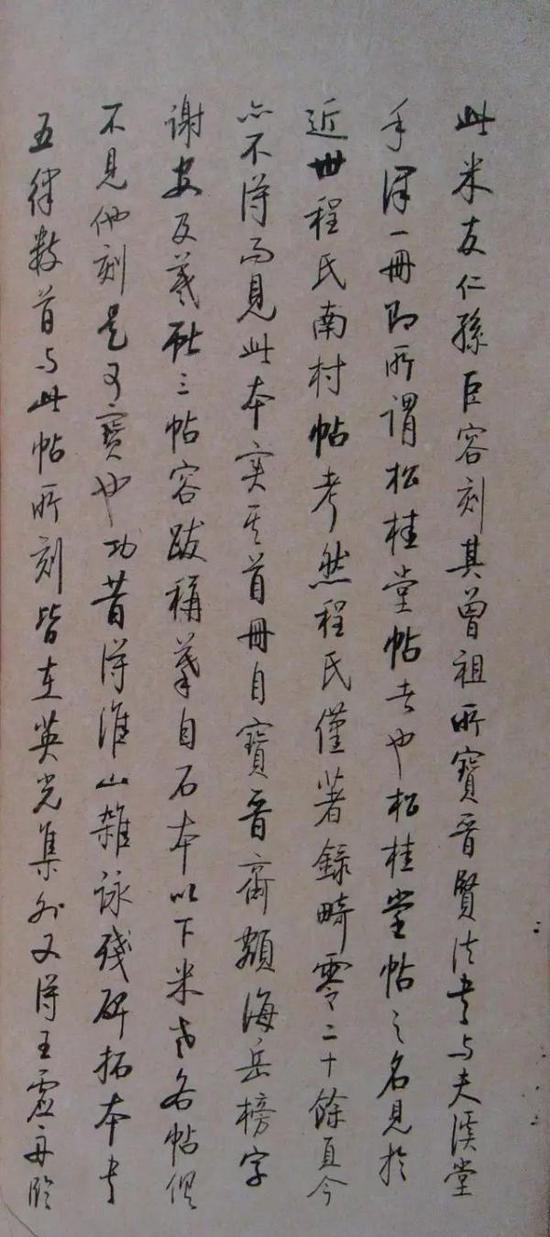 此米友仁孫巨容刻其曾祖所寶晉賢法書与夫溪堂
手澤一冊即所謂松桂堂帖者也松桂堂帖之名見於
近世程氏南村帖考然程氏僅著錄畸零二十餘頁今
亦不得而見此本實其首冊自寶晉齋額海岳榜字
謝安及羲獻三帖容跋稱摹自石本以下米老各帖俱
不見他刻是可寶也功昔得淮山雜詠殘碑拓本皆
五律數首与此帖所刻皆在英光集外又得王虛舟臨